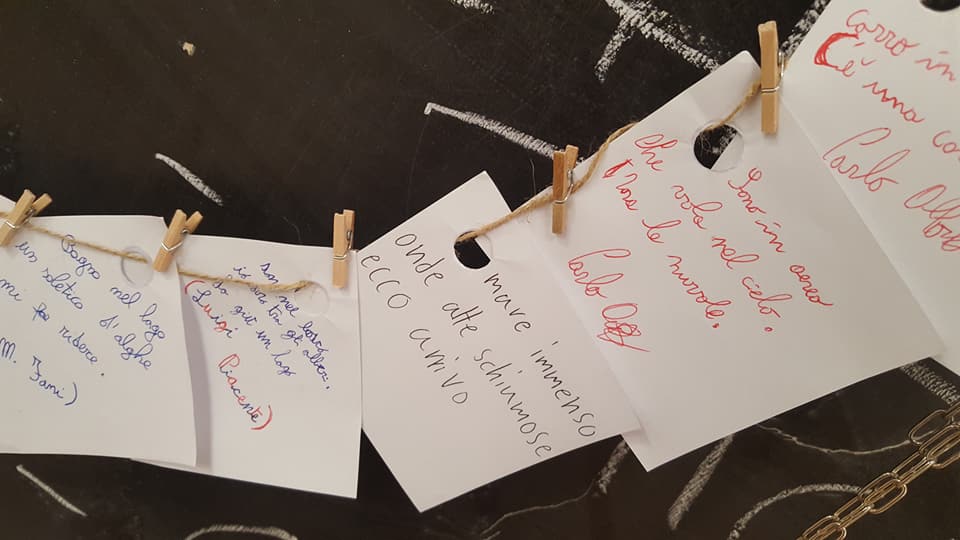 Bagno nel lago
un solletico d'alghe
mi fa ridere.
M. Zani)
son nel bosco
io sero tra gli alberi.
giù un lago
(Luigi Piacente)
mare immenso
onde alte schiumose
ecco arrivo
Sono in aereo
che vola nel cielo.
Tra le nuvole.
Carlo
Corro in
C'è una
Carlo